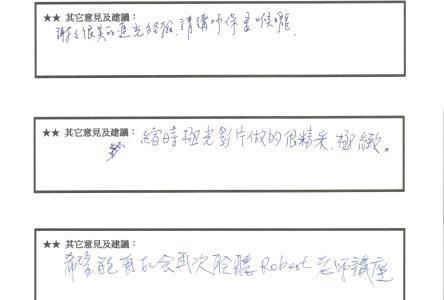 ★★ 其它意見及建議：
謝謝很美的追光經驗，請講師保重喉嚨.
★★ 其它意見及建議：
縮時極光影片做的很精采、極緻。
★★ 其它意見及建議：
希望能再次聆聽Robert老師講座